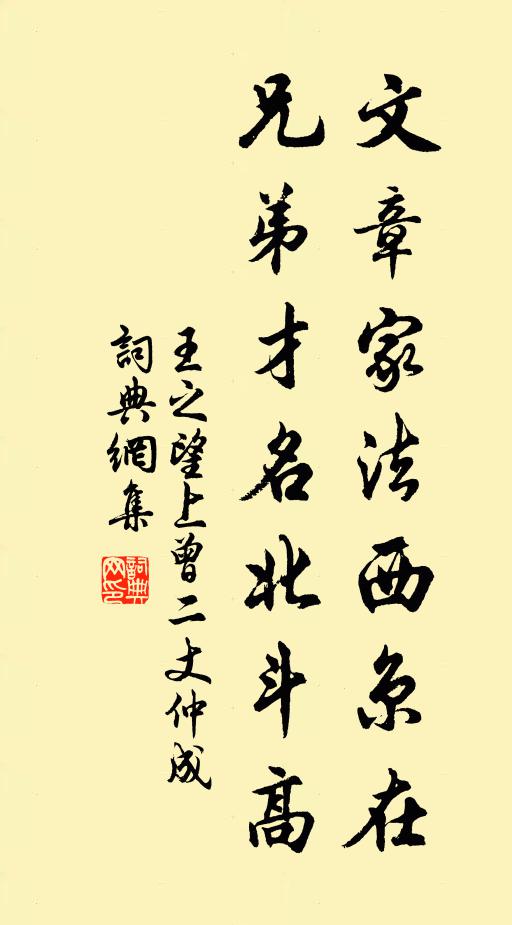 文章家法西京在
兄弟才名北斗高
王之望上曾二丈仲成
詞典網集
詞典网印